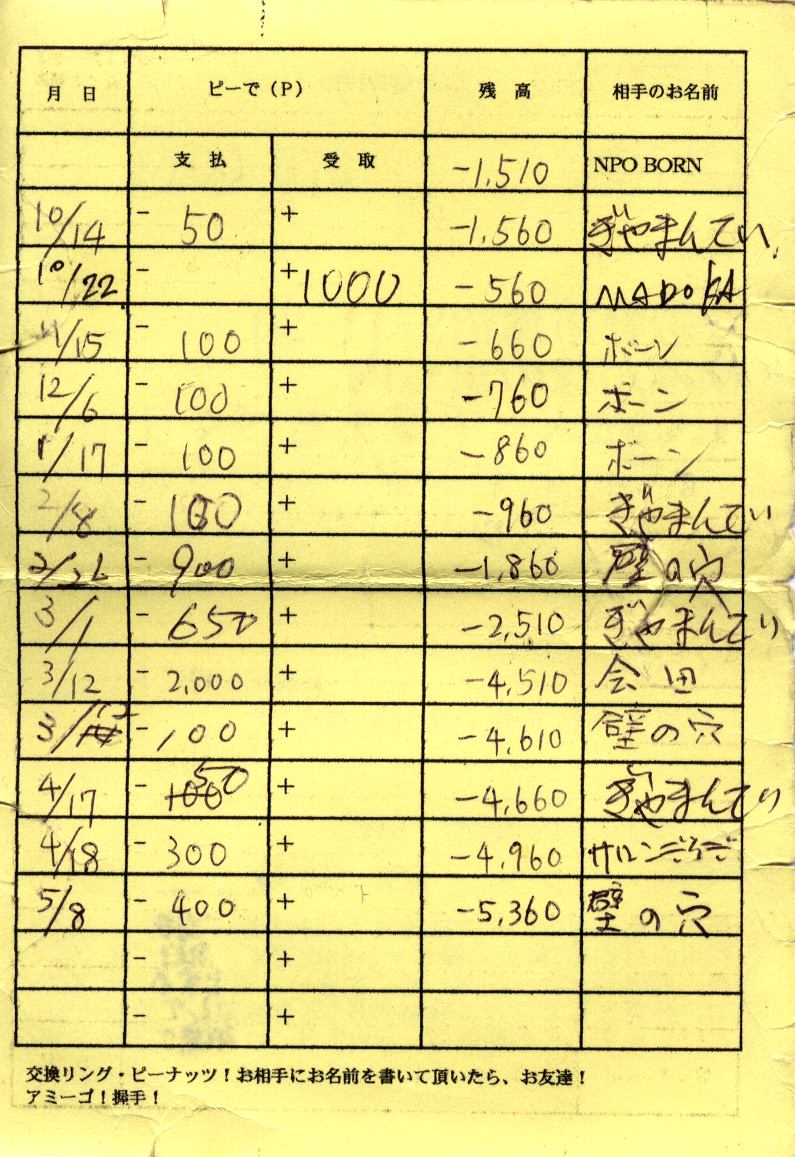 月 日 ピーで（P） 残 高 相手のお名前
支 払 受 取 -1,510 NPO BORN
10/14 - 50 + -1,560 ぎやまんてい
10/22 - +1000 -560 MADOKA
11/15 - 100 + -660 ボーン
12/6 - 100 + -760 ボーン
1/17 - 100 + -860 ボーン
2/8 - 100 + -960 ぎやまんてい
2/26 - 900 + -1,860 壁の穴
3/1 - 650 + -2,510 ぎやまんてい
3/12 - 2,000 + -4,510 会田
3/ - 100 + -4,610 壁の穴
4/17 - 50 + -4,660 ぎやまんてい
4/18 - 300 + -4,960 サロン
5/8 - 400 + -5,360 壁の穴
- +
- +
交換リング・ピーナッツ！お相手にお名前を書いて頂いたら、お友達！
アミーゴ！握手！